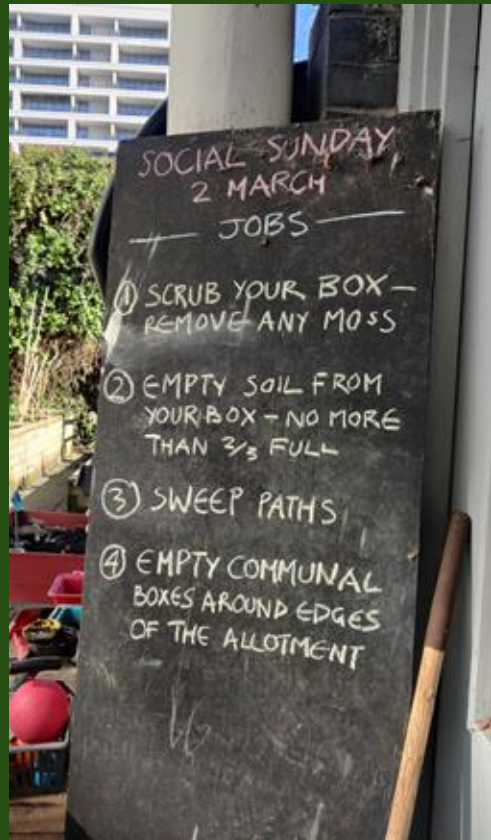 SOCIAL SUNDAY
2 MARCH
JOBS
① SCRUB YOUR BOX –
REMOVE ANY MOSS
② EMPTY SOIL FROM
YOUR BOX – NO MORE
THAN 2/3 FULL
③ SWEEP PATHS
④ EMPTY COMMUNAL
BOXES AROUND EDGES
OF THE ALLOTMENT